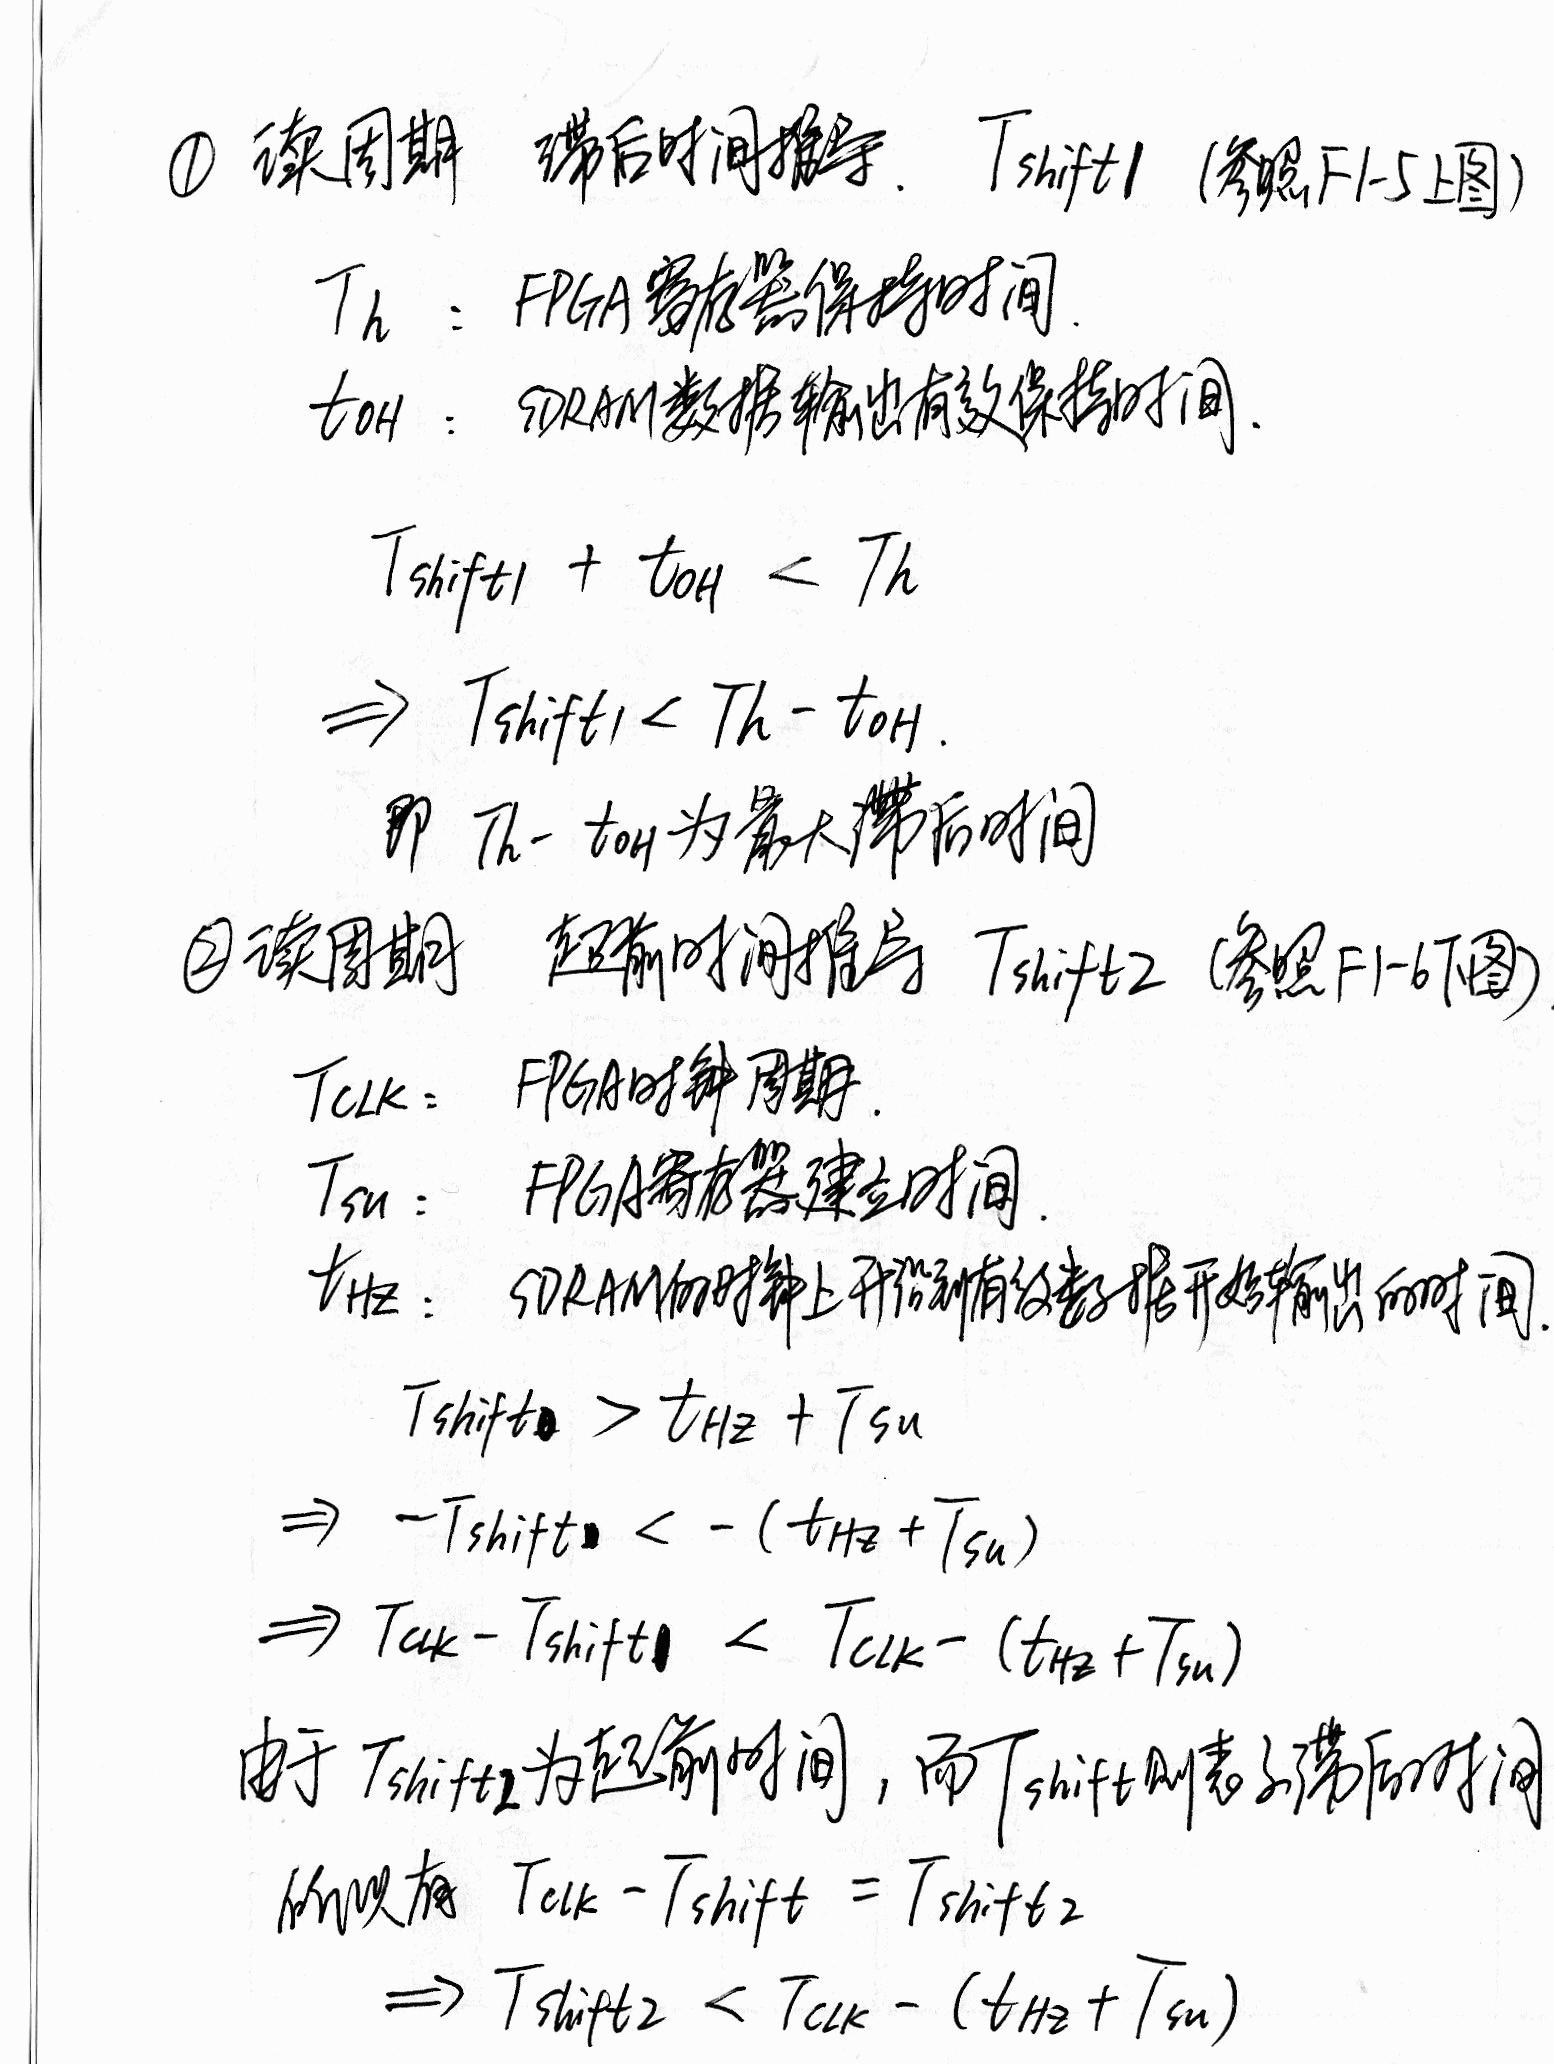 ① 读周期 滞后时间推导. Tshift1 (参照F1-5上图)
Th : FPGA寄存器保持时间.
tOH : SDRAM数据输出有效保持时间.
Tshift1 + tOH < Th
⇒ Tshift1 < Th - tOH.
即 Th - tOH为最大滞后时间
②读周期 超前时间推导 Tshift2 (参照F1-6下图).
TCLK: FPGA时钟周期.
Tsu: FPGA寄存器建立时间.
tHZ: SDRAM的时钟上升沿到有效数据开始输出的时间.
Tshift > tHZ + Tsu
⇒ -Tshift < -(tHZ + Tsu)
⇒ TCLK - Tshift < TCLK - (tHZ + Tsu)
由于 Tshift2为超前时间, 而Tshift则表示滞后时间
所以有 TCLK - Tshift = Tshift2
⇒ Tshift2 < TCLK - (tHZ + Tsu)